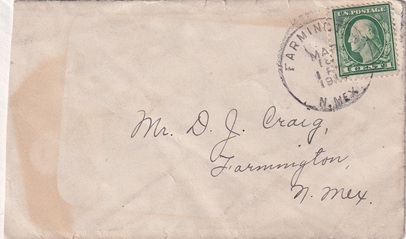 FARMING
MAR
N. MEX.
U.S. POSTAGE
1 CENT 1
Mr. D. J. Craig,
Farmington,
N. Mex.